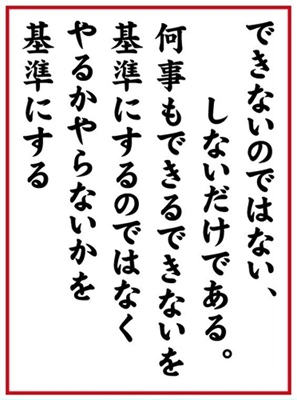 できないのではない、
しないだけである。
何事もできるできないを
基準にするのではなく
やるかやらないかを
基準にする